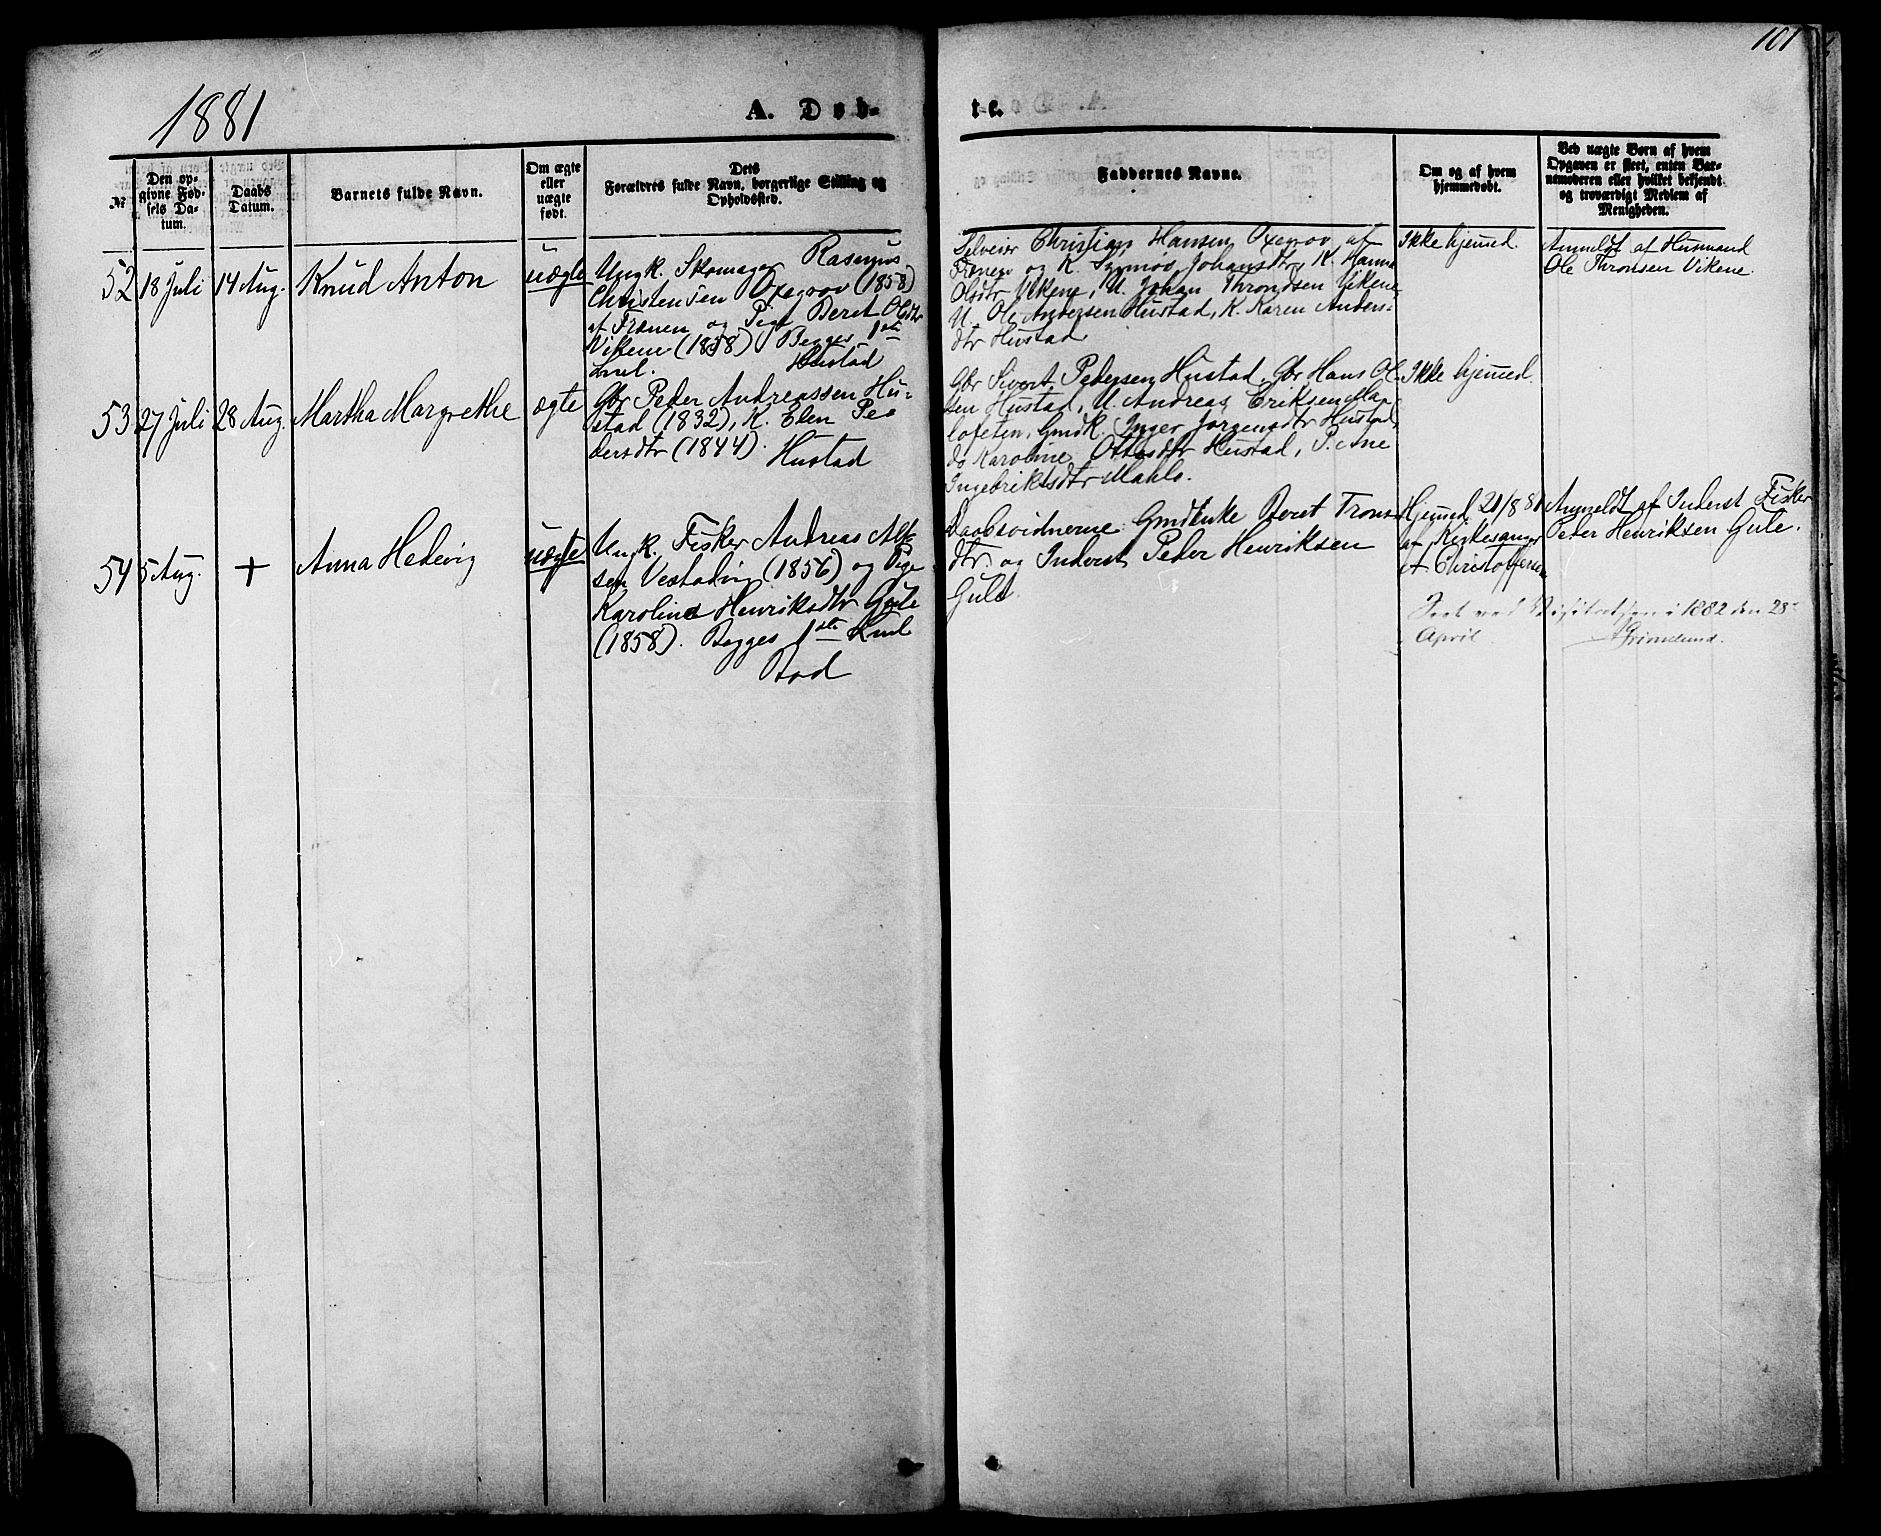 101
1881
A. Døb-
te.
№
Den op-
givne Fød-
sels Da-
tum.
Daabs
Datum.
Barnets fulde Navn.
Om ægte
eller
uægte
født.
Dets
Forældres fulde Navn, borgerlige Stilling og
Opholdssted.
Faddernes Navne.
Om og af hvem
hjemmedøbt.
Ved uægte Børn af hvem
Opgaven er skeet, enten Bar-
nemoderen eller hvilket bekjendt
og troværdigt Medlem af
Menigheden.
52
18 Juli
14 Aug.
Knud Anton
uægte
Ungk. Skomager Rasmus
Christensen Oxegrov (1858)
af Frænen og Pige Berit Olsdtr
Vikene (1858) Begges 1ste
Lml. Hustad
Selveier Christian Hansen Oxegrov af
Frænen og K. Synnøv Johansdtr, K. Hanna
Olsdtr Vikene, U. Johan Throndsen Vikene,
U. Ole Andersen Hustad, K. Karen Anders-
dtr Hustad
Ikke hjemmed.
Anmeldt af Husmand
Ole Thronsen Vikene.
53
27 Juli
28 Aug.
Martha Margrethe
ægte
Gbr Peder Andreassen Hu-
stad (1832), K. Elen Pe-
dersdtr (1844). Hustad
Gbr Sivert Pedersen Hustad, Gbr Hans Ol-
sen Hustad, U. Andreas Eriksen Ma-
lefeten, Gmdk. Inger Jørgensdtr Hustad,
do Karoline Ottesdtr Hustad, P. Ane
Ingebriktsdtr Mahle.
Ikke hjemmed.
54
5 Aug.
+
Anna Hedevig
uægte
Ungk. Fisker Andreas Alf-
sen Vestadvig (1856) og Pige
Karoline Henriksdtr Gule
(1858). Begges 1ste Lml
Bod
Daabsvidnerne: Gmdenke Beret Trons-
dtr. og Inderst Peder Henriksen
Gule.
Hjemmed. 21/8 81
af Kirkesanger
Christoffersen
Anmeldt af Inderst Fisker
Peder Henriksen Gule.
Seet ved Visitatsen i 1882 den 28de
April. Grimelund.